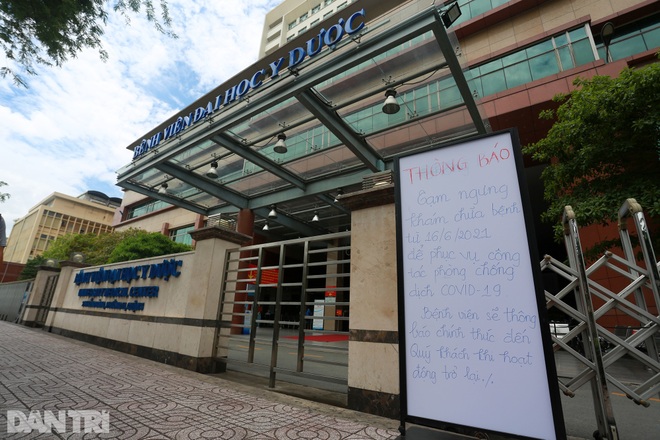 BỆNH VIỆN ĐẠI HỌC Y DƯỢC
THÔNG BÁO
Tạm ngừng
khám chữa bệnh
từ 16/6/2021
để phục vụ công
tác phòng chống
dịch COVID-19
Bệnh viện sẽ thông
báo chính thức đến
Quý khách khi hoạt
động trở lại./.
BỆNH VIỆN ĐẠI HỌC Y DƯỢC
UNIVERSITY MEDICAL CENTER
DÂN TRÍ